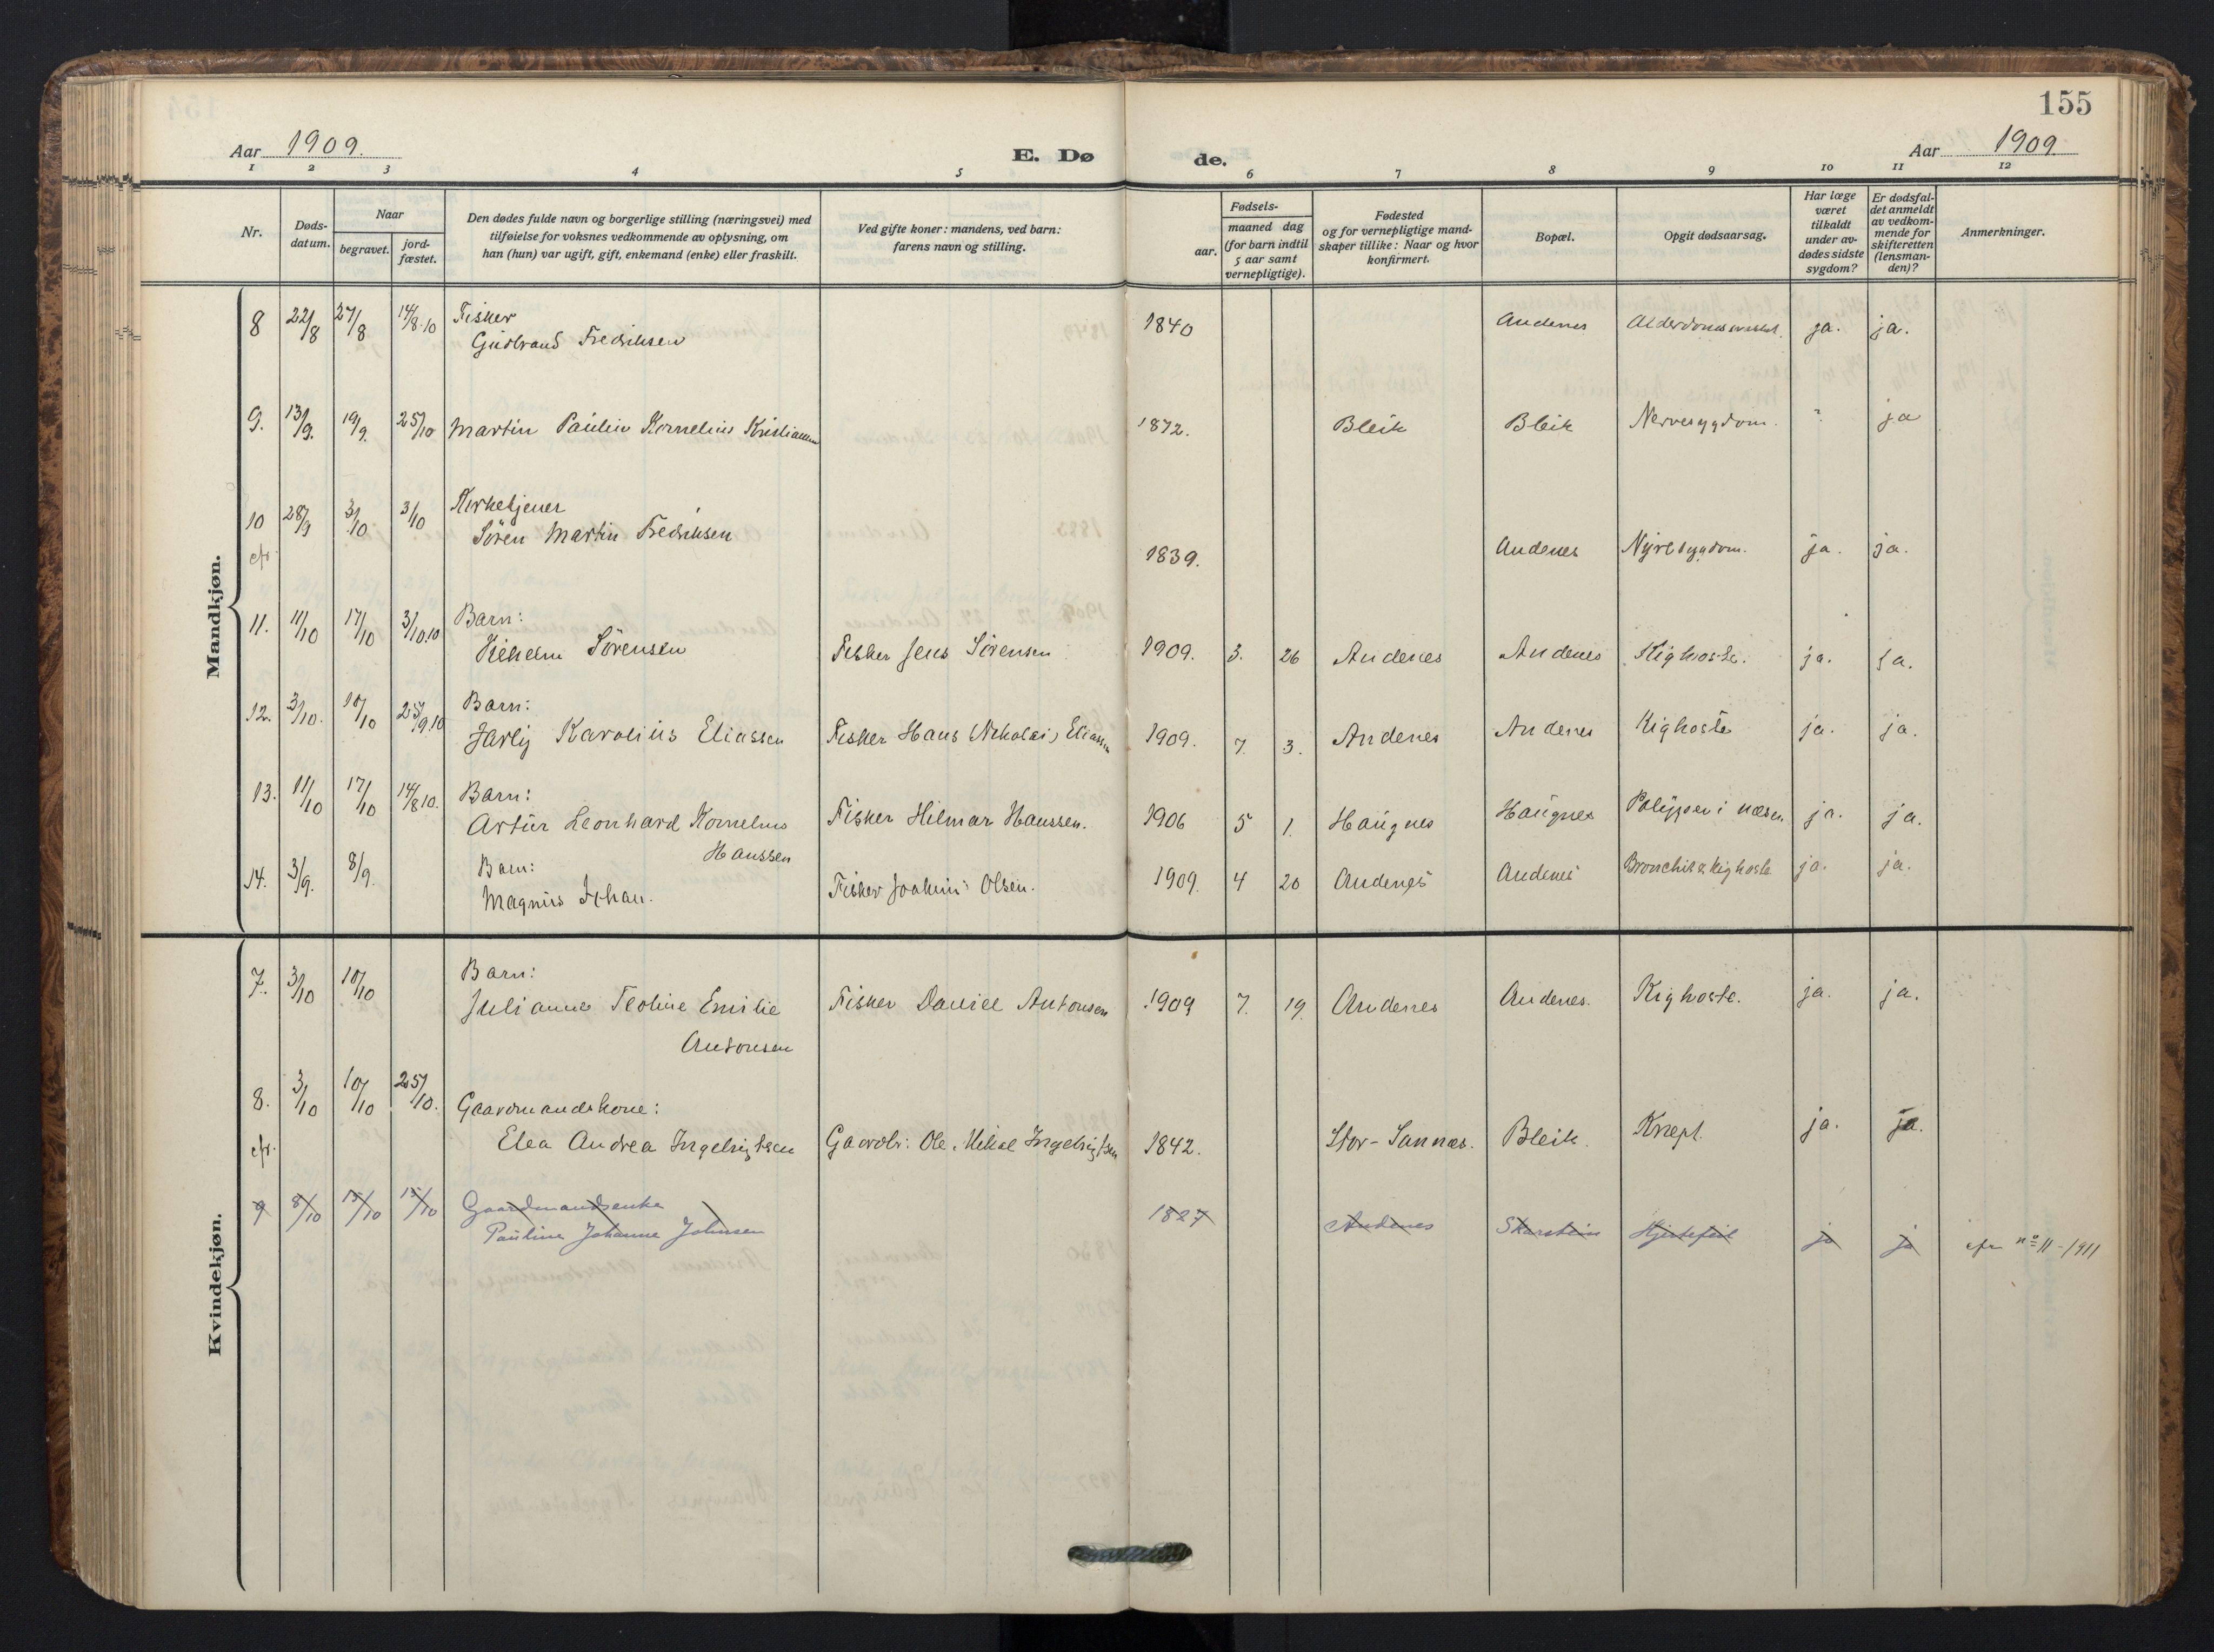 155
Aar 1909.
E. Dø
de.
Aar 1909
1 2 3 4 5 6 7 8 9 10 11 12
Nr.
Døds-
datum.
Naar
begravet.
jord-
fæstet.
Den dødes fulde navn og borgerlige stilling (næringsvei) med
tilføielse for voksnes vedkommende av oplysning, om
han (hun) var ugift, gift, enkemand (enke) eller fraskilt.
Ved gifte koner: mandens, ved barn:
farens navn og stilling.
Fødsels-
aar.
maaned dag
(for barn indtil
5 aar samt
vernepligtige).
Fødested
og for vernepligtige mand-
skaper tillike: Naar og hvor
konfirmert.
Bopæl.
Opgit dødsaarsag.
Har læge
været
tilkaldt
under av-
dødes sidste
sygdom?
Er dødsfal-
det anmeldt
av vedkom-
mende for
skifteretten
(lensman-
den)?
Anmerkninger.
Mandkjøn.
8 22/8 27/8 14/8.10 Fisker
Gudbrand Fredriksen 1840 Andenes ja. ja.
9. 13/9. 19/9. 25/10 Martin Paulin Kornelius Kristiansen 1872. Bleik Bleik Nervesygdom. ? ja
10 28/9 3/10 3/10 Kirketjener
cfr. Søren Martin Fredriksen 1839. Andenes Nyresygdom. ja. ja.
11. 11/10 17/10 3/10.10 Barn:
Vilhelm Sörensen Fisker Jens Sörensen 1909. 3. 26 Andenes Andenes Kighoste. ja. ja.
12. 3/10. 10/10 25/9.10 Barn:
Jarly Karolius Eliassen Fisker Hans Nikolai Eliassen 1909. 7. 3. Andenes Andenes Kighoste ja. ja.
13. 11/10 17/10 14/8 10. Barn:
Artur Leonhard Kornelius Fisker Hilmar Hanssen. 1906 5 1. Haugnes Haugnes Polypper i næsen ja. ja.
Hanssen
14. 3/9. 8/9. Barn:
Magnus Johan. Fisker Joakim Olsen. 1909. 4 20 Andenes Andenes Bronchit & kighoste ja. ja.
Kvindekjøn.
7. 3/10 10/10 Barn:
Julianne Teoline Emilie Fisker Daniel Antonsen 1909 7. 19. Andenes Andenes. Kighoste. ja. ja.
Antonsen
8. 3/10 10/10 25/10. Gaardmandskone:
cfr. Elea Andrea Ingebrigtsen Gaardbr: Ole Mikal Ingebrigtsen 1842. Stor-Sannes. Bleik. Kræft. ja. ja.
9 8/10 15/10 15/10 Gaardmandsenke
Pauline Johanne Johnsen 1827 Andenes Skarstein Hjertefeil ja ja cfr nº 11-1911